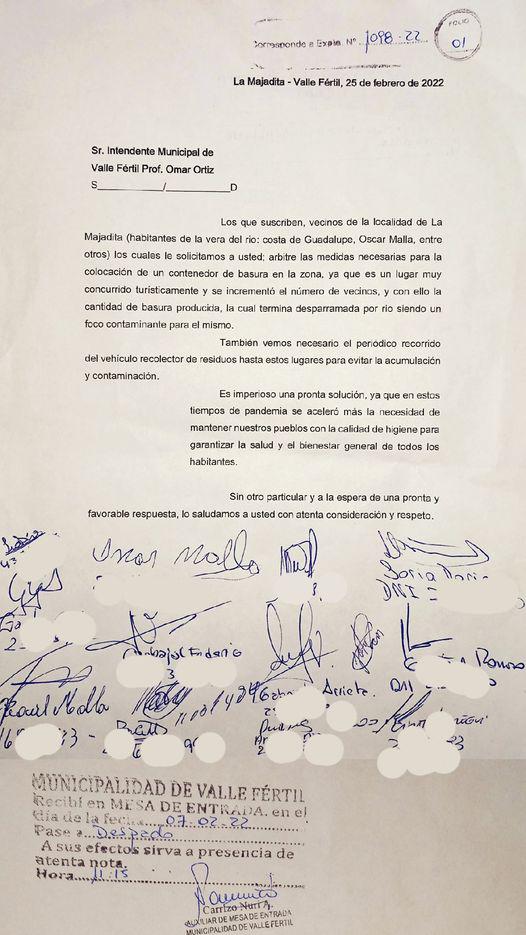 Corresponde a Expte. N° 1098-22
FOLIO
01
La Majadita - Valle Fértil, 25 de febrero de 2022
Sr. Intendente Municipal de
Valle Fértil Prof. Omar Ortiz
S__________/__________D
Los que suscriben, vecinos de la localidad de La
Majadita (habitantes de la vera del rio: costa de Guadalupe, Oscar Malla, entre
otros) los cuales le solicitamos a usted; arbitre las medidas necesarias para la
colocación de un contenedor de basura en la zona, ya que es un lugar muy
concurrido turísticamente y se incrementó el número de vecinos, y con ello la
cantidad de basura producida, la cual termina desparramada por rio siendo un
foco contaminante para el mismo.
También vemos necesario el periódico recorrido
del vehículo recolector de residuos hasta estos lugares para evitar la acumulación
y contaminación.
Es imperioso una pronta solución, ya que en estos
tiempos de pandemia se aceleró más la necesidad de
mantener nuestros pueblos con la calidad de higiene para
garantizar la salud y el bienestar general de todos los
habitantes.
Sin otro particular y a la espera de una pronta y
favorable respuesta, lo saludamos a usted con atenta consideración y respeto.
Oscar Malla
Soria
DNI
Federico
Arrieta
Raul Malla
MUNICIPALIDAD DE VALLE FÉRTIL
Recibí en MESA DE ENTRADA, en el
día de la fecha 07.02.22
Pase a Despacho
A sus efectos sirva a presencia de
atenta nota.
Hora 11:15
Carrizo Nuri A.
AUXILIAR DE MESA DE ENTRADA
MUNICIPALIDAD DE VALLE FÉRTIL